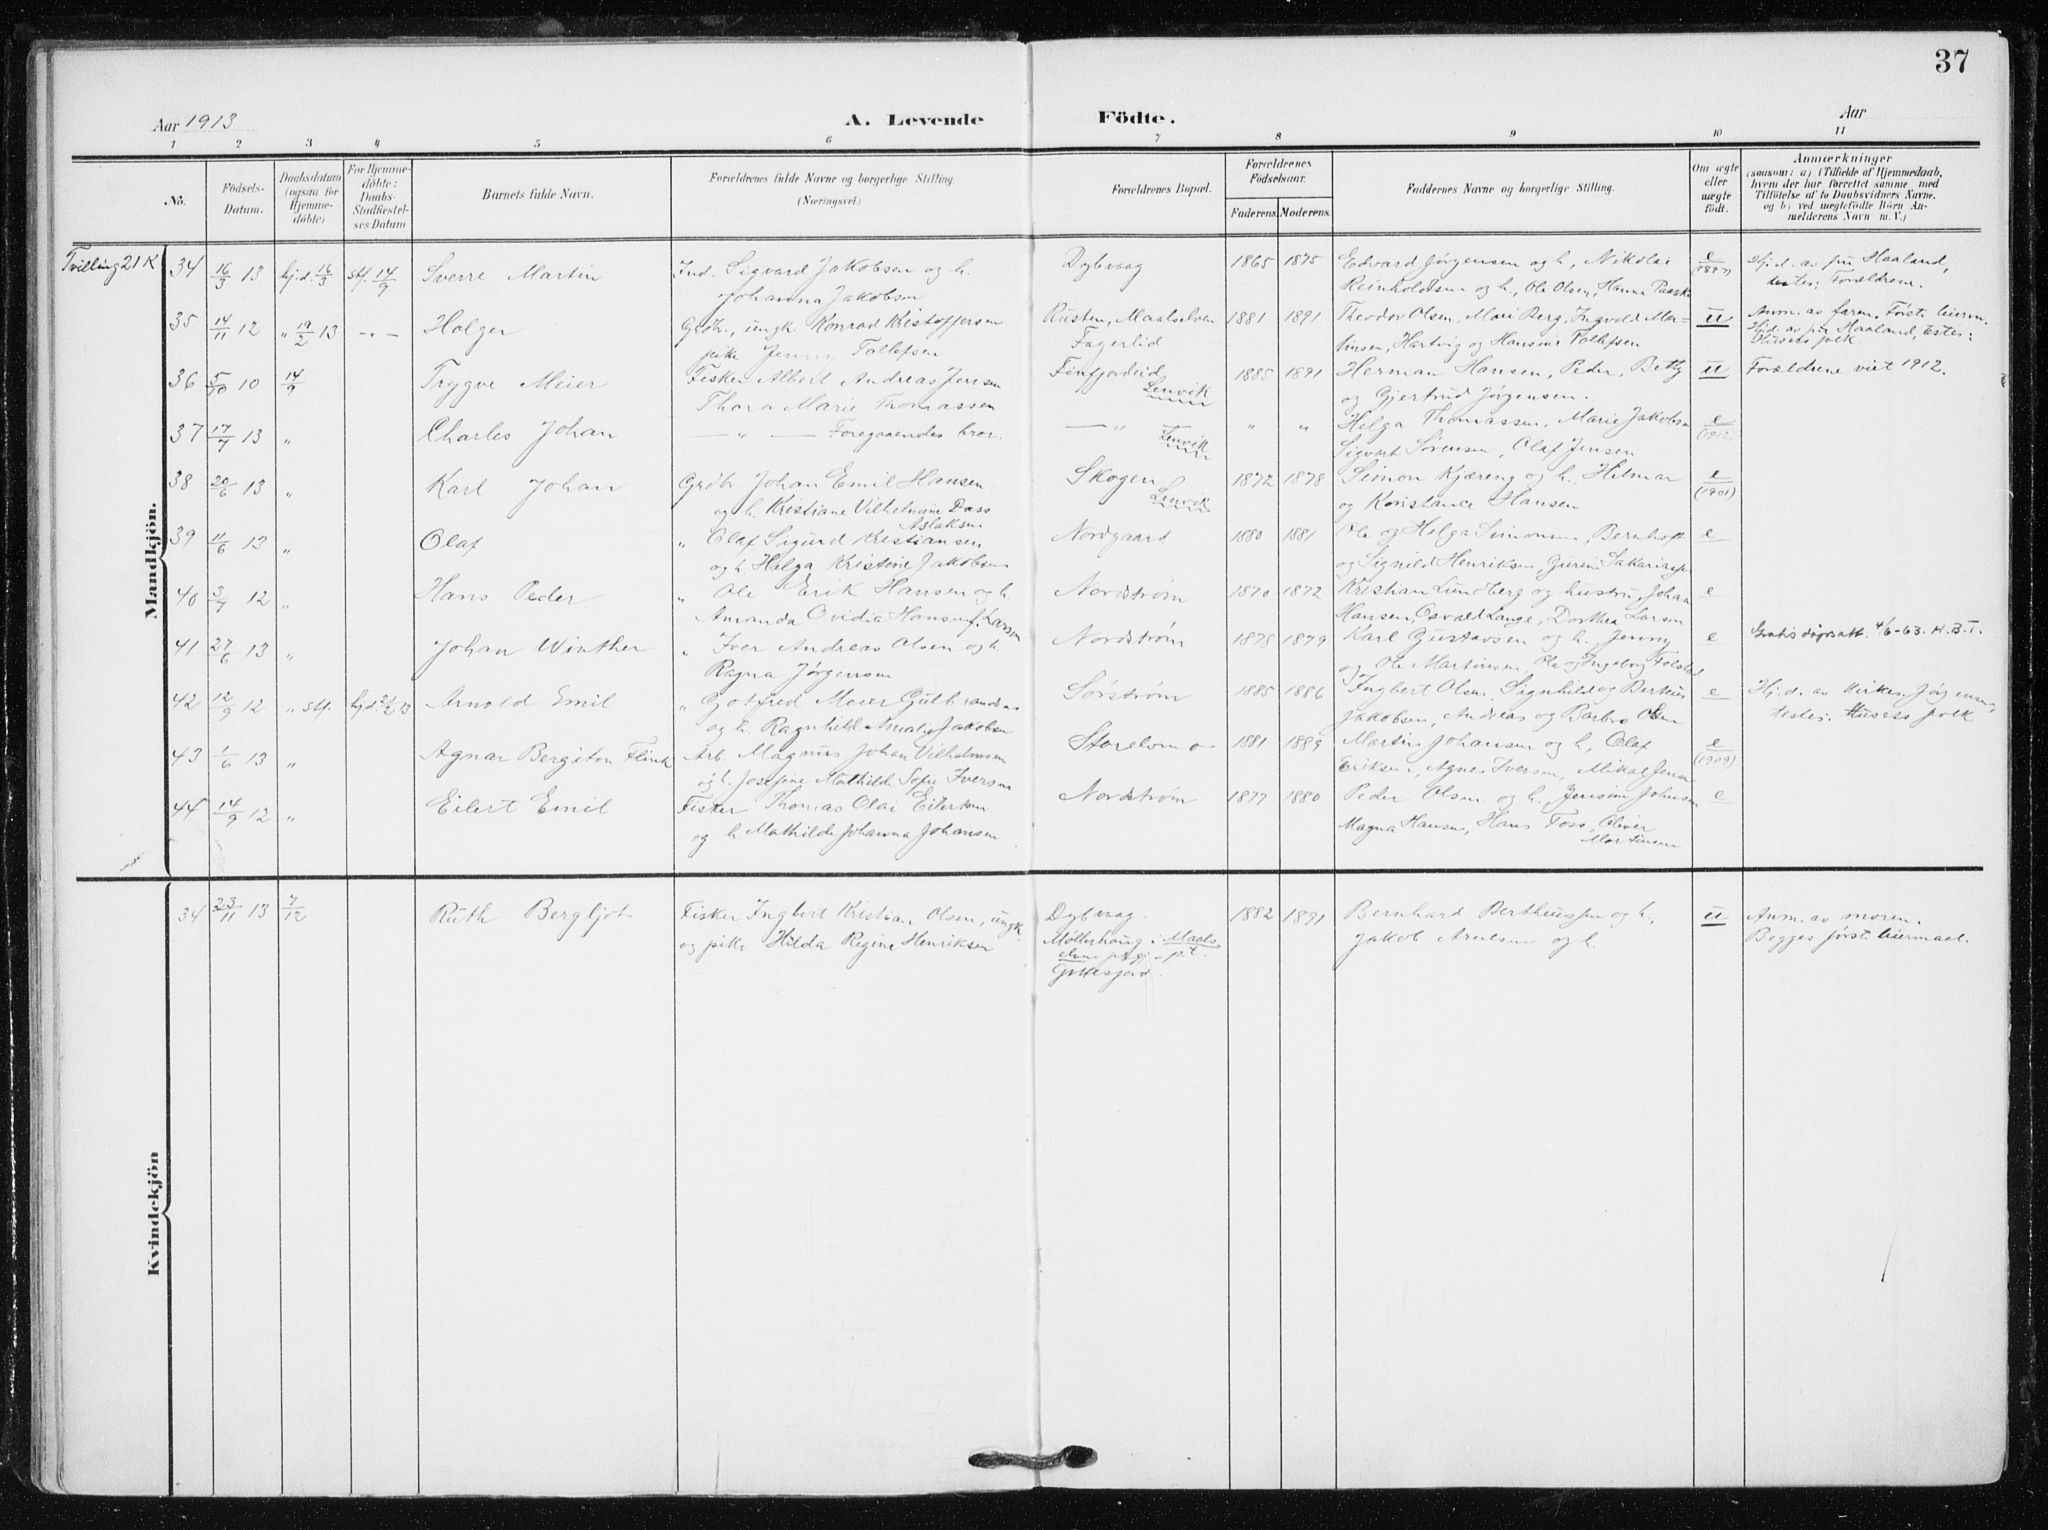 37
Aar 1913 A. Levende Födte. Aar
1 2 3 4 5 6 7 8 9 10 11
No. Födsels-Datum. Daabsdatum (ogsaa for Hjemme-döbte; For Hjemme-döbte: Daabs-Stadfæstel-ses Datum Barnets fulde Navn. Forældrenes fulde Navne og borgerlige Stilling (Næringsvei.) Forældrenes Bopæl. Forældrenes Födselsaar. Faderens. Moderens. Faddernes Navne og borgerlige Stilling. Om ægte eller uægte födt. Anmærkninger (saasom: a) i Tilfælde af Hjemmedaab, hvem der har forrettet samme med Tilföielse af to Daabsvidners Navne. og b) ved uægtefödte Börn An-melderens Navn m. V.)
Mandkjön.
Tvilling 21 K 34 16/3 13 hj.d. 16/3 stf. 14/9 Sverre Martin Ind. Sigvard Jakobsen og h. Dybvaag 1865 1875 Edvard Jørgensen og h, Nikolai e Hj.d. av Haaland,
Johanna Jakobsen Reinholdtsen og h, Ole Olsen, Hanna testes: Forældrene.
35 14/11 12 " 19/2 13 - " - Holger Grdbr., ungk. Konrad Kristoffersen Rusten, Maalselven 1881 1891 Theodor Olsen, Mari Berg, Ingvald Mar- u Anm. av faren. Først. leierm.
pike Jenny Tollefsen Fagerlid tinsen, Hartvig og Hansine Tollefsen Hj.d. av Haaland, testes:
Husets folk.
36 5/10 10 14/9 Trygve Meier Fisker Albert Andreas Jensen Finfjordeid 1885 1891 Herman Hansen, Peder, Betty u Forældrene viet 1912.
Thora Marie Thomassen Lenvik og Gjertrud Jørgensen.
37 17/7 13 " Charles Johan — " — Foregaaendes bror. — " Lenvik " " Helga Thomassen, Marie Jakobsen e
(1912) Sigvart Sørensen, Olaf Jensen
38 20/6 13 " Karl Johan Grdbr. Johan Emil Hansen Skogen 1872 1878 Simon Kjæreng og h, Hilmar e
og h. Kristiane Vilhelmine Dass Lenvik og Konstance Hansen (1901)
Aslaksen
39 11/6 13 " Olaf " Olaf Sigurd Kristiansen Nordgaard 1880 1881 Ole og Helga Simonsen, Bernhoft e
og h. Helga Kristine Jakobsen og Signild Henriksen,
40 3/7 12 " Hans Peder " Ole Erik Hansen og h. Nordstrøm 1870 1872 Kristian Lundberg og hustru, Johan e
Amanda Ovidia Hansen f. Larsen Hansen, Osvald Lange, Dorthea Larsen
41 27/6 13 " Johan Winther " Iver Andreas Olsen og h. Nordstrøm 1878 1879 Karl Gustavsen og h. Jenny e Gratis dåpsatt. 4/6-63. H.B.T.
Ragna Jørgensen og Ole Martinsen, Ole og Ingeborg
42 12/9 12 " stf. hj.d. Arnold Emil " Gotfred Meier Gulbrandsen Sørstrøm 1885 1886 Ingbert Olsen, Signhild og Berthus e Hj.d. av kirkes. Jørgensen,
og h. Ragnhild Amalie Jakobsen Jakobsen, Andreas og Barbro Olsen testes: Husets folk
43 1/6 13 " Agnar Bergiton Flink Arb. Magnus Johan Vilhelmsen 1881 1889 Martin Johansen og h, Olaf e
og h. Josefine Mathilde Sofie Iversen Eriksen, Agnes Iversen, Mikal Jensen (1909)
44 14/9 12 " Eilert Emil Fisker Thomas Olai Eilertsen Nordstrøm 1877 1880 Peder Olsen og h, Jensine Johnsen e
og h. Mathilde Johanna Johansen Magna Hansen, Hans Foss, Oliver
Martinsen
Kvindekjön
34 23/11 13 7/12 Ruth Bergljot Fisker Ingbert Kristian Olsen, ungk. Dybvaag. 1882 1891 Bernhard Berthussen og h, u Anm. av moren.
og pike Hilda Regine Henriksen Møllerhaug i Maals- Jakob Arnesen og h. Begges først. leiermaal.
elven p.t.